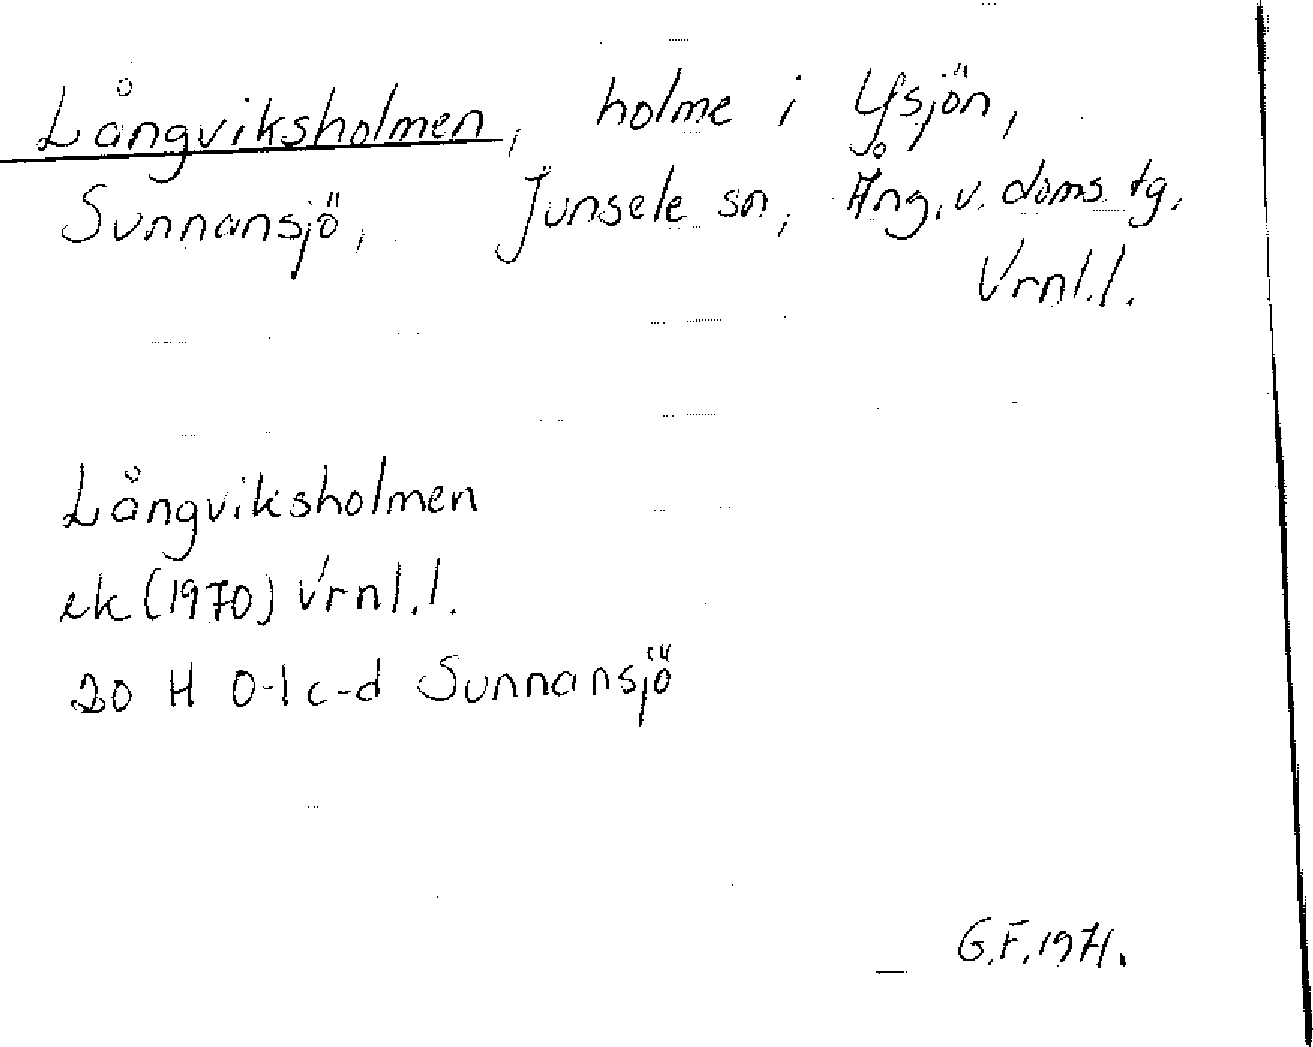 Långviksholmen, holme i Ysjön,
Sunnansjö, Junsele sn, Ång.v. doms.tg.
Vrnl.l.
Långviksholmen
ek (1970) Vrnl.l.
20 H 0-1 c-d Sunnansjö
G.F. 1971.